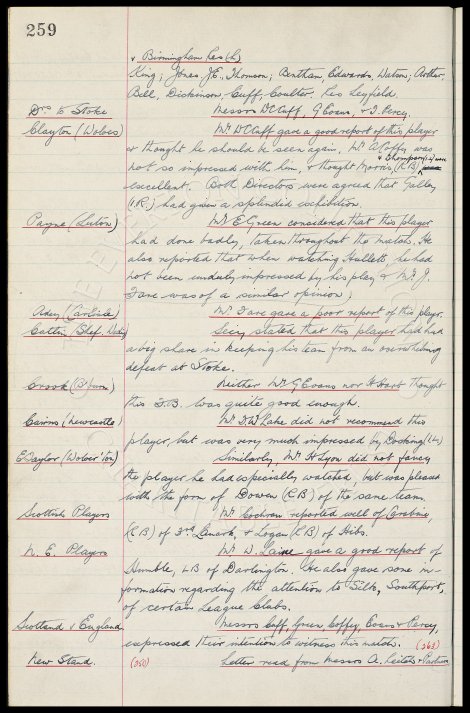 259
v Birmingham Res (h)
King; Jones J.E. Thomson; Bentham, Edwards, Watson; Arthur,
Bell, Dickinson, Cuff, Coulter. Res Leyfield.
Drs to Stoke Messrs W.C. Cuff, G Evans, & T. Percy.
Clayton (Wolves) Mr W C Cuff gave a good report of this player
& thought he should be seen again, Mr A Coffey was
not so impressed with him, & thought Morris (R.B.) & Thompson were
excellent. Both Directors were agreed that Galley
(I.R.) had given a splendid exhibition.
Payne (Luton) Mr E Green considered that this player
had done badly, taken throughout the match. He
also reported that when watching Hullett he had
not been unduly impressed by his play & Mr J.
Fare was of a similar opinion,
(Carlisle) Mr Fare gave a poor report of this player.
Catlin (Shef. Wedy) Secy stated that this player had had
a big share in keeping his team from an overwhelming
defeat at Stoke.
Crook (B'burn) Neither Mr G Evans nor H Hart thought
this F.B. was quite good enough.
Cairns (Newcastle) Mr D.W Lake did not recommend this
player, but was very much impressed by Docking (I.L.)
E Taylor (Wolver'ton) Similarly, Mr H Lyon did not fancy
the player he had especially watched, but was pleased
with the form of Dowen (R B) of the same team.
Scottish Players Mr Cochran reported well of Carabine,
(R B) of 3rd Lanark, & Logan (R B) of Hibs.
N. E. Players Mr W. Laine gave a good report of
Humble, L B of Darlington. He also gave some in-
formation regarding the attention to Silto, Southport,
of certain League Clubs.
Scotland v England Messrs Cuff, Green Coffey, Evans & Percy,
expressed their intention to witness this match. (263)
New Stand. (250) Letter read from Messrs A. Leitch & Partners